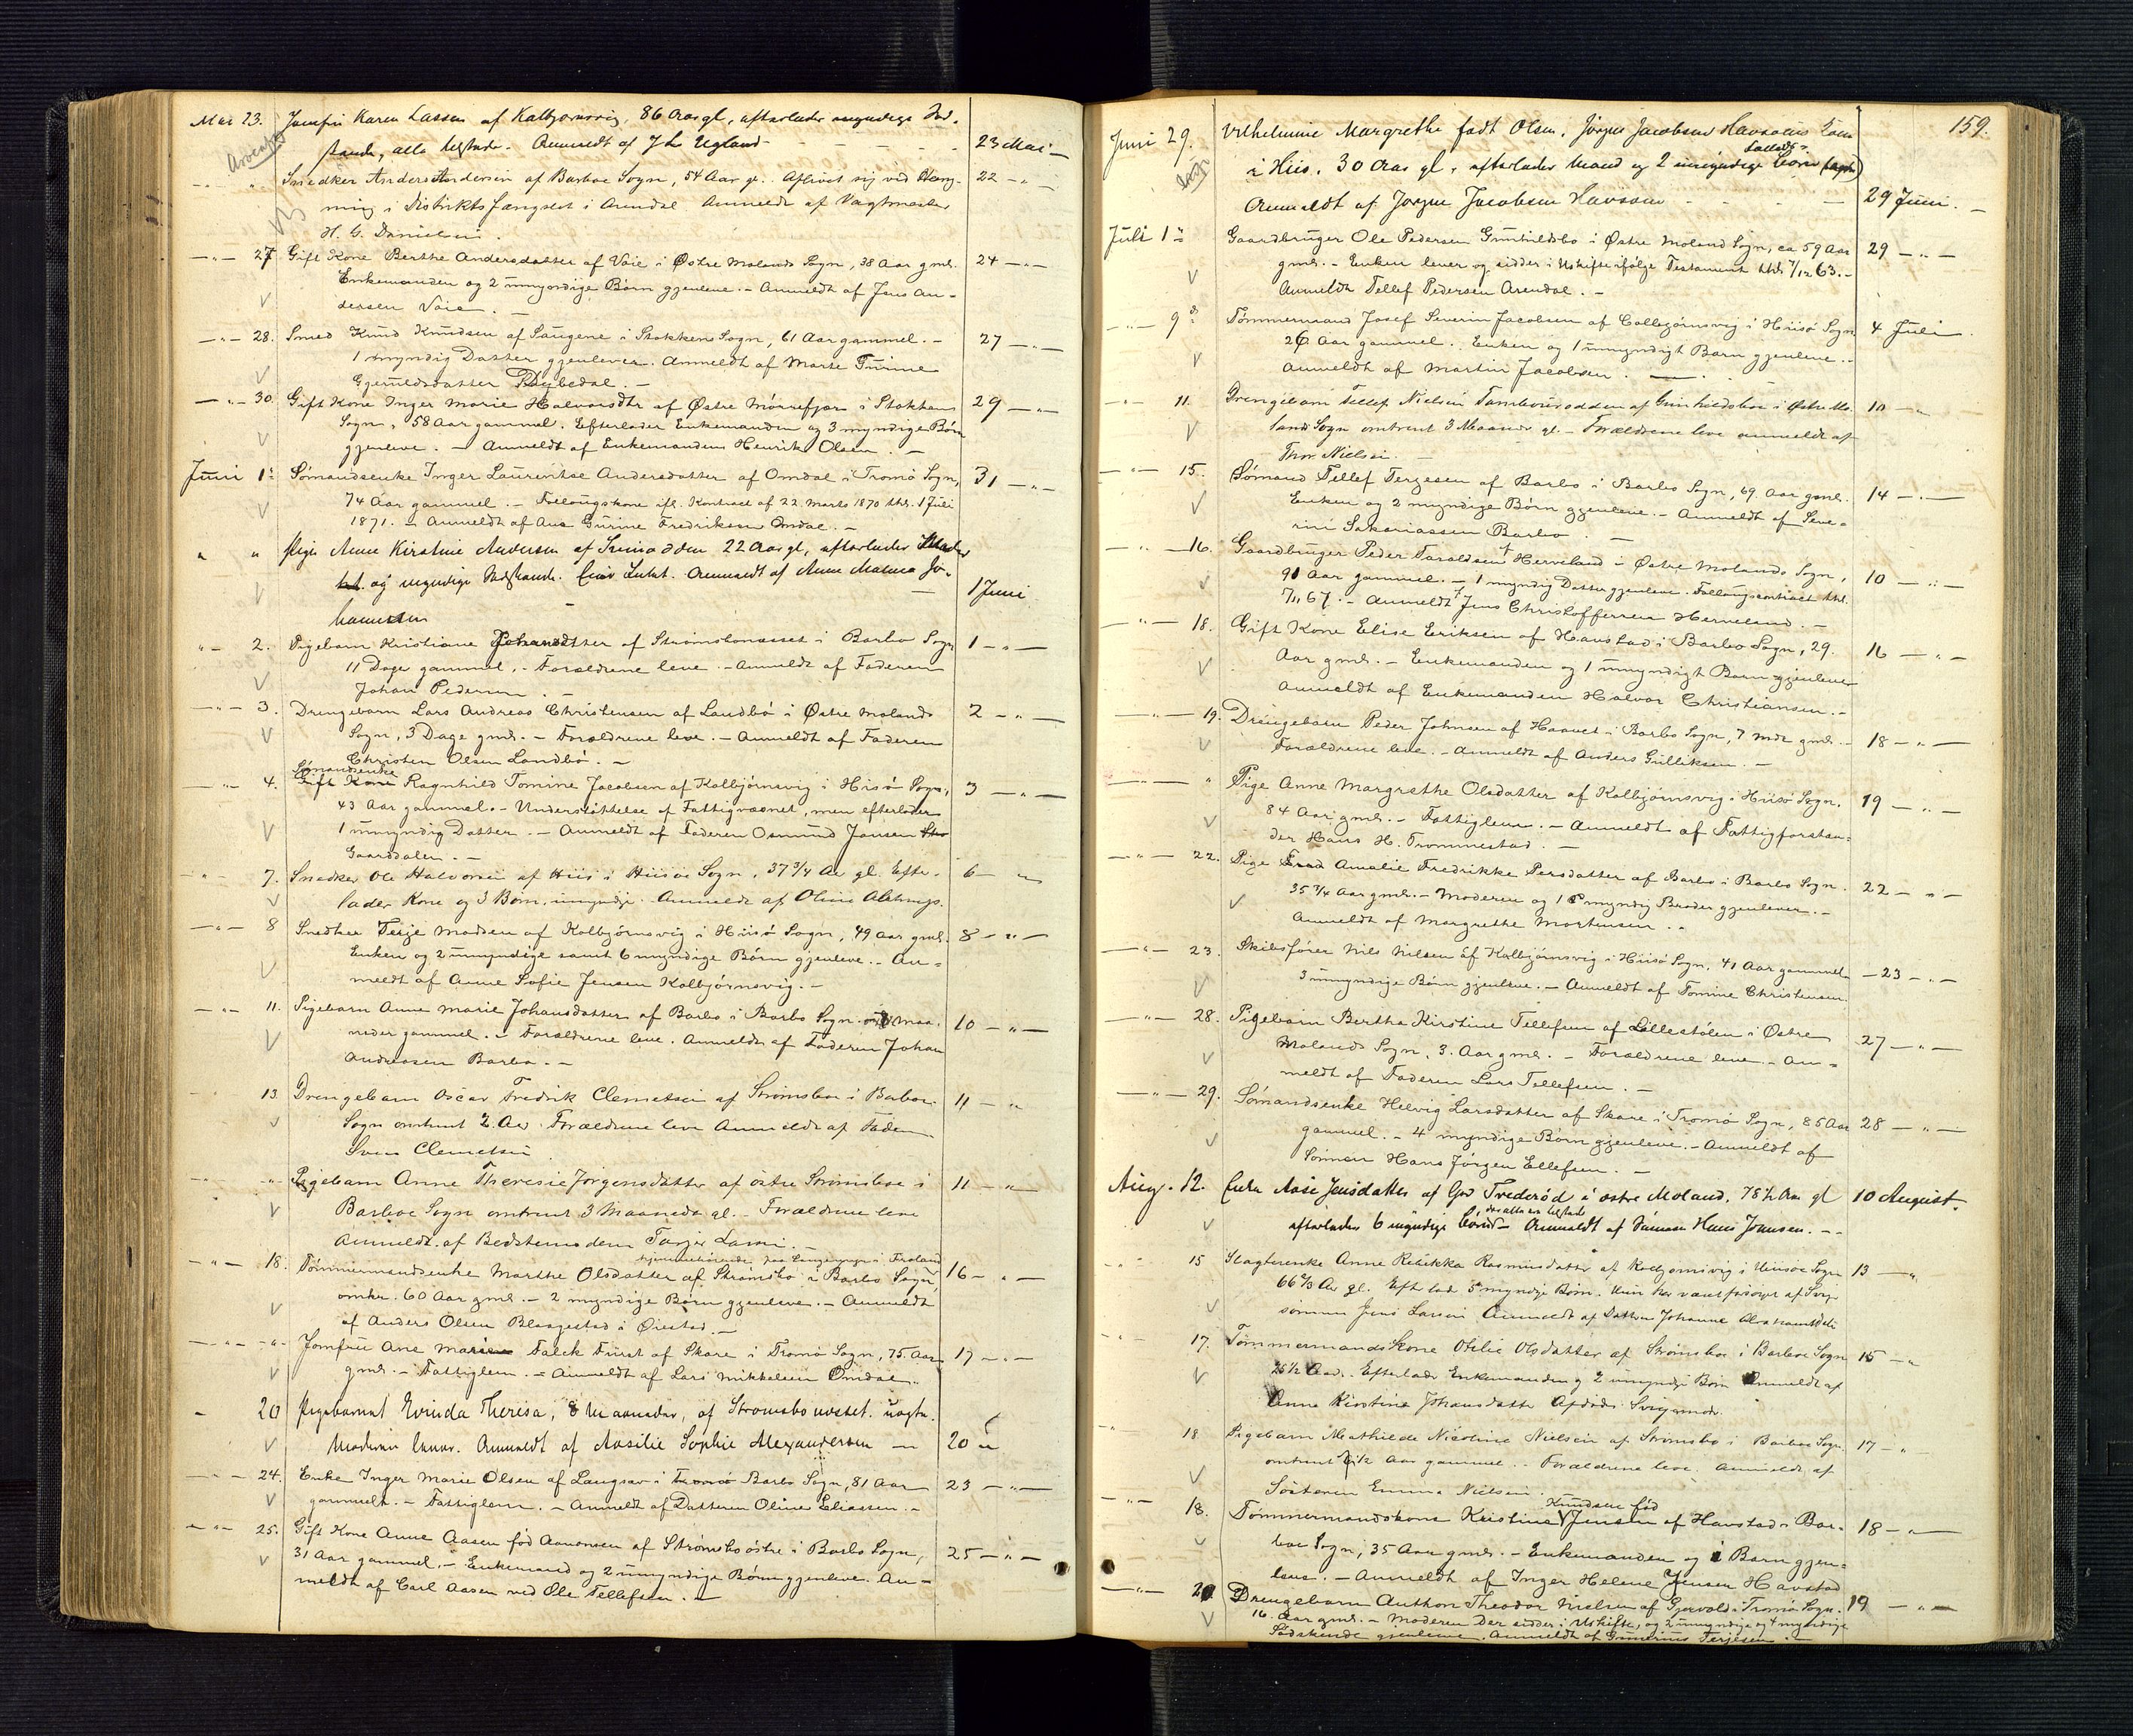 Mai 23. Jomfru Karen Lassen af Kalbjørnsvig, 86 Aar gl, efterlader myndige Sød-
skende, alle tilstede. Anmeldt af J L Ugland 23 Mai
" Snedker Anders Andersen af Barboe Sogn, 54 Aar gl. Aflivet sig ved Hæng- 22 - " -
ning i Distriktsfængslet i Arendal Anmeldt af Vagtmester
H. G. Danielsen.
- " - 27 Gift Kone Berthe Andersdatter af Vaie i Østre Molands Sogn, 38 Aar gml. 24 - " -
Enkemanden og 2 umyndige Børn gjenleve. - Anmeldt af Jens An-
dersen Vaie. -
- " - 28. Smed Knud Knudsen af Saugene i Stokken Sogn, 61 Aar gammel. - 27 - " -
1 myndig Datter gjenlever. Anmeldt af Marte Turine
Gjeruldsdatter Dybedal. -
- " - 30. Gift Kone Inger Marie Halvorsdtr af Østre Mørrefjær i Stokkens 29 - " -
Sogn, 58 Aar gammel. Efterlader Enkemanden og 3 myndige Børn
gjenleve. - Anmeldt af Enkemanden Henrik Olsen. -
Juni 1. Sømandsenke Inger Laurentse Andersdatter af Omdal i Tromø Sogn, 31 - " -
74 Aar gammel. - Follougskone ifl. Kontract af 22 Marts 1870 thl. 1 Juli
1871. - Anmeldt af Ane Gurine Fredriksen Omdal. -
" " Pige Anne Kirstine Andersen af 22 Aar gl, efterlader
og myndige Sødskende. Anmeldt af Anne Malene Jo- 1 Juni
hannesen
" - 2. Pigebarn Kristiane Johansdtter af Strømsbonæsset i Barbo Sogn 1 - " -
11 Dage gammel. - Forældrene leve. - Anmeldt af Faderen
Johan Pedersen. -
- " - 3. Drengebarn Lars Andreas Christensen af Landbø i Østre Molands 2 - " -
Sogn, 3 Dage gml. - Forældrene leve. - Anmeldt af Faderen
Christen Olsen Landbø. -
Sømandsenke
- " - 4. Gift Kone Ragnhild Tomine Jacobsen af Kolbjørnsvig i Hisø Sogn, 3 - " -
43 Aar gammel. - Understøttelse af Fattigvæsnet, men efterlader
1 umyndig Datter. - Anmeldt af Faderen Osmund Jansen
Gaarddalen. -
- " - 7. Snedker Ole Halvorsen af Hiis i Hiisøe Sogn, 37 3/4 Aar gl. Efter- 6 - " -
lader Kone og 3 Børn, umyndige. Anmeldt af Oline
- " - 8 Snedker Terje Madsen af Kolbjørnsvig i Hisø Sogn, 49 Aar gml. 8 - " -
Enken og 2 umyndige samt 6 myndige Børn gjenleve. - An-
meldt af Anne Sofie Jensen Kolbjørnsvig. -
- " - 11. Pigebarn Anne Marie Johansdatter af Barbo i Barbo Sogn, Maa- 10 - " -
neder gammel. - Forældrene leve. Anmeldt af Faderen Johan
Andreasen Barbo. -
13. Drengebarn Oscar Fredrik Clemetsen af Strømsboe i Barboe 11 - "
Sogn omtrent 2 Aar. Forældrene leve Anmeldt af Faderen
Svens Clemetsen
- " - Pigebarn Anne Theresie Jørgensdatter af østre Strømsboe i 11 - " -
Barboe Sogn omtrent 3 Maaneder gl. - Forældrene leve
Anmeldt af Bedstemoderen Tarjer Larsen. -
- " - 18. Tømmermandsenke Marthe Olsdatter af Strømsbo i Barbo Sogn, 16 - " -
omkr. 60 Aar gml. - 2 myndige Børn gjenleve. - Anmeldt
af Anders Olsen Blaagestad i Øiestad. -
- " - " - Jomfru Ane Marie Falck Fürst af Skare i Tromø Sogn, 75 Aar 17 - " -
gml. - Fattiglem. - Anmeldt af Lars Mikkelsen Omdal. -
- 20 Pigebarnet Evinda Theresa, 8 Maaneder, af Strømsbonæsset. uægte.
Moderen lever. Anmeldt af Aasilie Sophie Alexandersen - 20 "
- " - 24. Enke Inger Marie Olsen af Langsæv i Tromø Barbo Sogn, 81 Aar 23 - " -
gammelt. - Fattiglem. - Anmeldt af Datteren Oline Eliassen. -
- " - 25. Gift Kone Anne Aasen fød Aanonsen af Strømsbo østre i Barbo Sogn, 25 - " -
31 Aar gammel. - Enkemand og 2 umyndige Børn gjenleve. An-
meldt af Carl Aasen ved Ole Tellefsen. -
159.
Juni 29. Wilhelmine Margrethe født Olsen, Jørgen Jacobsen Havsøens Kone
i Hiis, 30 Aar gl, efterlader Mand og 2 umyndige Børn
Anmeldt af Jørgen Jacobsen Havsøen - 29 Juni -
Juli 1. Gaardbruger Ole Pedersen Gunhildsbo i Østre Moland Sogn, ca 59 Aar 29 - " -
gml. - Enken lever og sidder i Uskifte ifølge Testament thl. 7/12 63. -
Anmeldt Tellef Pedersen Arendal. -
- " - 9. Tømmermand Josef Severin Jacobsen af Colbjørnsvig i Hiisø Sogn 4 Juli
26 Aar gammel. Enken og 1 umyndigt Barn gjenleve. -
Anmeldt af Martin Jacobsen.
- " 11. Drengebarn Tellef Nielsen Tambourodden af Gunhildsboe i Østre Mo- 10 - "
lands Sogn omtrent 3 Maaneder gl. - Forældrene leve anmeldt af
Thor Nielsen. -
- " - 15. Sømand Tellef Terjesen af Barbo i Barbo Sogn, 69 Aar gml. 14 - " -
Enken og 2 myndige Børn gjenleve. - Anmeldt af Seve-
rin Sakariassen Barbo. -
- " - 16. Gaardbruger Peder Taraldsen Herveland i Østre Molands Sogn, 10 - " -
91 Aar gammel. - 1 myndig Datter gjenleve. Follougscontract thl.
7/11 67. - Anmeldt Jens Christoffersen Herveland. -
- " - 18. Gift Kone Elise Eriksen af Havstad i Barbo Sogn, 29 16 - " -
Aar gml. - Enkemanden og 1 umyndigt Barn gjenlever
Anmeldt af Enkemanden Halvor Christiansen. -
- " - 19. Drengebarn Peder Johnsen af Haavet i Barbo Sogn, 7 Mdr gml. - 18 - " -
Forældrene leve. - Anmeldt af Anders Gulliksen. -
- " - " Pige Anne Margrethe Olsdatter af Kolbjørnsvig i Hiisø Sogn. 19 - " -
84 Aar gml. - Fattiglem. - Anmeldt af Fattigforstan-
der Hans H. Trommestad. -
- " - 22. Pige Amalie Fredrikke Persdatter af Barbo i Barbo Sogn. 22 - " -
35 3/4 Aar gml. - Moderen og 1 myndig Broder gjenlever. -
Anmeldt af Margrethe Mortensen. -
- " - 23. Skibsfører Nils Nilsen af Kolbjørnsvig i Hiisø Sogn, 41 Aar gammel - 23 - " -
3 umyndige Børn gjenleve. - Anmeldt af Tomine Christensen.
- " - 28. Pigebarn Berthe Kirstine Tellefsen af Lillestølen i Østre 27 - " -
Molands Sogn, 3 Aar gml. - Forældrene leve. - An-
meldt af Faderen Lars Tellefsen. -
- " - 29. Sømandsenke Helvig Larsdatter af Skare i Tromø Sogn, 85 Aar 28 - " -
gammel. - 4 myndige Børn gjenleve. - Anmeldt af
Sønnen Hans Jørgen Ellefsen. -
Aug. 12. Enke Aase Jensdatter af Grd Trederød i østre Moland, 78 1/2 Aar gl 10 August.
efterlader 6 myndige Børn - Anmeldt af Sønnen Hans Joansen. - -
15 Slagterenke Anne Rebekka Rasmusdatter af Kolbjørnsvig i Hiisøe Sogn 13 - "
66 2/3 Aar gl. Efterlader 5 myndige Børn. Hun har været forsørget af Sviger-
sønnen Jens Larsen Anmeldt af Datteren Johanne
17. Tømmermandskone Otilie Olsdatter af Strømsboe i Barboe Sogn 15 - "
25 1/2 Aar. Efterlader Enkemanden og 2 umyndige Børn Anmeldt af
Anna Kirstine Johansdatter Afdødes Svigermoder.
18 Pigebarn Mathilde Nicoline Nielsen af Strømsbo i Barboe Sogn. 17 - "
omtrent 1/2 Aar gammel. - Forældrene leve. Anmeldt af
Søsteren Emma Nielsen.
Knudsen fød
- " - 18. Tømmermandskone Kristine Jensen af Havstad i Bar- 18 - " -
boe Sogn, 35 Aar gml. - Enkemanden og 1 Barn gjen-
leve. - Anmeldt af Inger Helene Jensen Havstad
- " - 20 Drengebarn Anthon Theodor Nielsen af Gjervold i Tromø Sogn. 19 - " -
16 Aar gml. - Moderen Der sidder i Uskifte, og 2 umyndige og 4 myndige
Sødskende gjenleve. Anmeldt af Gunerius Terjesen. -